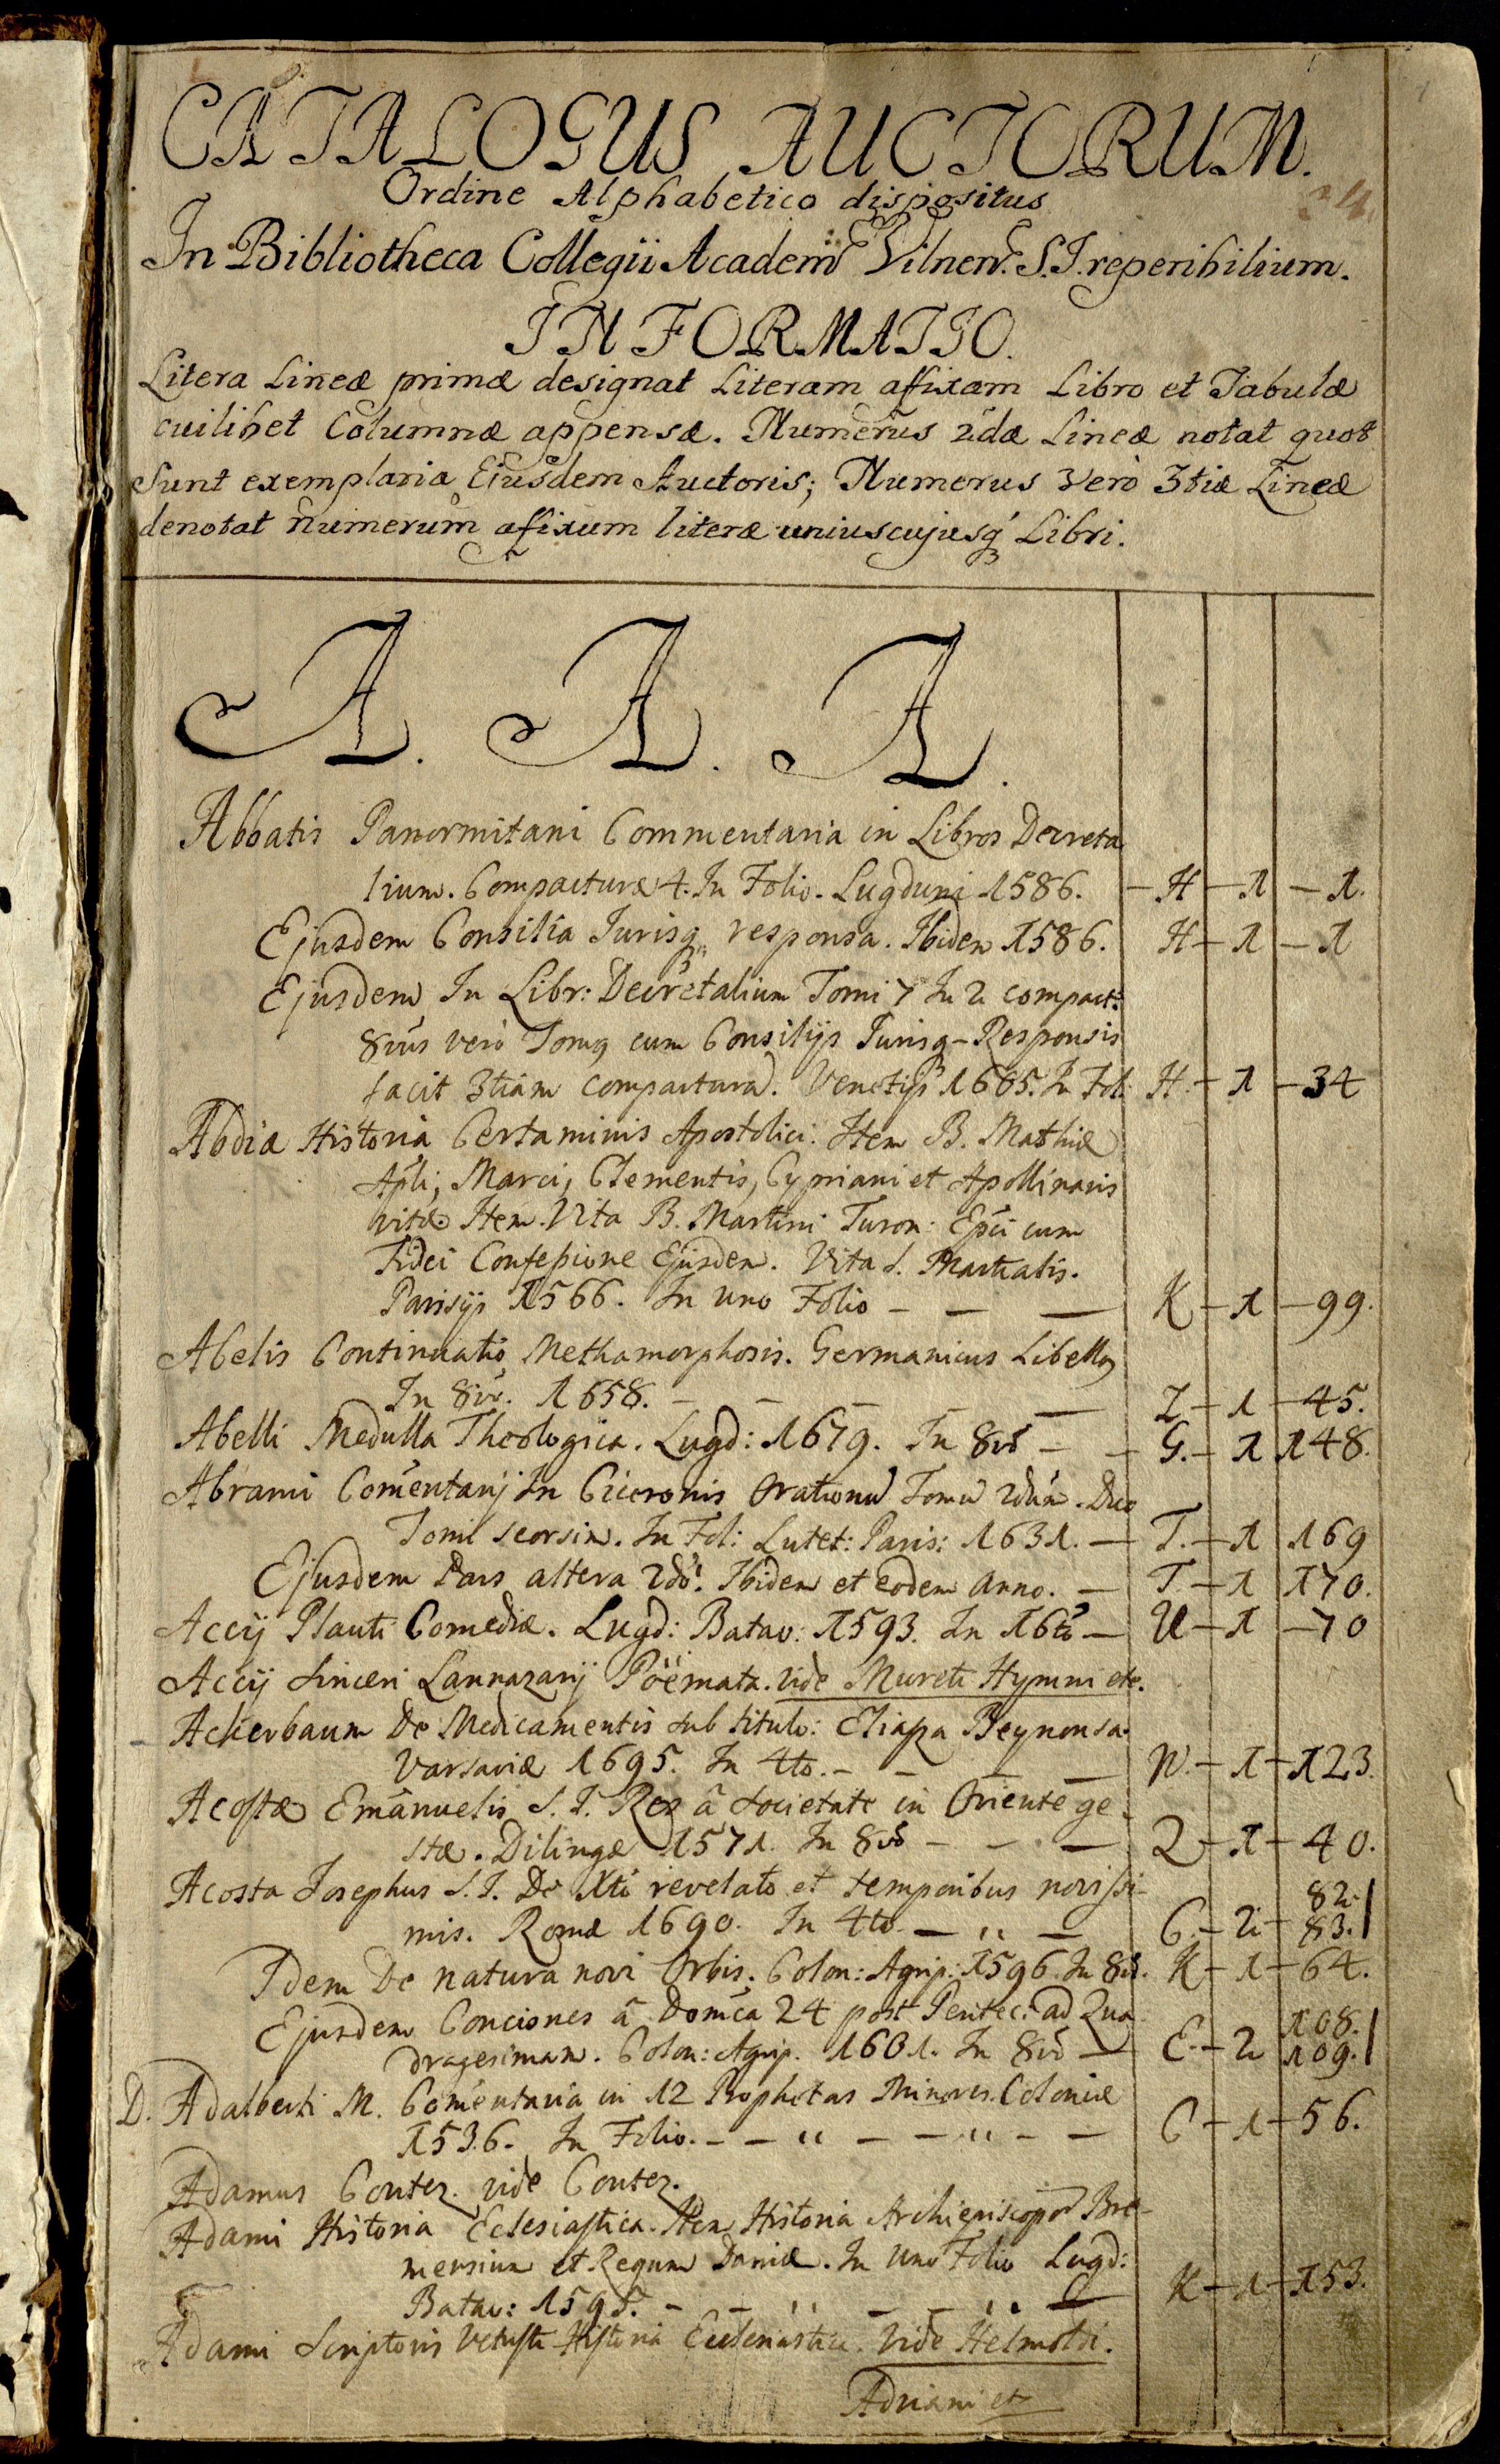 CATALOGUS AUCTORUM.
Ordine Alphabetico dispositus
34.
In Bibliotheca Collegii Academ Vilnen. S.I. reperibilium.
INFORMATIO.
Litera Lineæ primæ designat Literam affixam Libro et Tabulæ
cuilibet Columnæ appensæ. Numerus 2dæ Lineæ notat quot
Sunt exemplaria Ejusdem Auctoris; Numerus vero 3tiæ Lineæ
denotat numerum affixum literæ uniuscujusq Libri.
A. A. A.
Abbatis Panormitani Commentaria in Libros Decreta
lium. Compacturæ 4. In Folio. Lugduni 1586. – H – 1 – 1.
Ejusdem Consilia Jurisq responsa. Ibidem 1586. H – 1 – 1
Ejusdem In Libr: Decretalium Tomi 7 In 2 compact:
8vus vero Tomq cum Consilijs Jurisq – Responsis
facit 3tiam compacturã. Venetijs 1605. In Fol: H. – 1 – 34
Abdiæ Historia Certaminis Apostolici. Item B. Mathiæ
Apli, Marci, Clementis, Cypriani et Apollinaris
vitæ. Item. Vita B. Martini Turon: Epci cum
Fidei Confessione Ejusdem. Vita S. Martialis.
Parisijs 1566. In uno Folio – – – K – 1 – 99.
Abelis Continuatio Methamorphosis. Germanicus Libellq
In 8vo. 1658. – – – – – Z – 1 – 45.
Abelli Medulla Theologica. Lugd: 1679. In 8vo – – G. – 1 148.
Abrami Comentarij In Ciceronis Orationũ Tomũ 2dũm. Duo
Tomi seorsim. In Fol: Lutet: Paris: 1631. – T. – 1 169
Ejusdem Pars altera 2di. Ibidem et eodem Anno. – T. – 1 170.
Accij Plauti Comediæ. Lugd: Batav: 1593. In 16to – U – 1 – 70
Accij Sinceri Sannazarij Poëmata. vide Mureti Hymni etc.
Ackerbaum De Medicamentis sub titulo: Eliasza Beynonsa.
Varsaviæ 1695. In 4to. – – – – W. – 1 – 123.
Acostæ Emãnuelis S. I. Res â Societate in Oriente ge-
stæ. Dilingæ 1571. In 8vo – – – Q – 1 – 40.
Acosta Josephus S. I. De Xto revelato et temporibus novissi-
mis. Romæ 1690. In 4to. – „ – C. – 2 – 82. 83.
Idem De natura novi Orbis. Colon: Agrip: 1596. In 8vo. K – 1 – 64.
Ejusdem Conciones â Domca 24 post Pentec: ad Qua
dragesimam. Colon: Agrip. 1601. In 8vo – E. – 2 108. 109.
D. Adalberti M. Comentaria in 12 Prophetas Minores. Coloniæ
1536. In Folio. – – „ – – „ – – C – 1 – 56.
Adamus Contez. vide Contez.
Adami Historia Eclesiastica. Item Historia Archiepiscopor Bre-
mensium et Regum Daniæ. In uno Folio Lugd:
Batav: 1595. – – „ – – „ – K – 1 – 153.
Adami Scriptoris Vetusti Historia Ecclesiastica. vide Helmoldi.
Adriani et